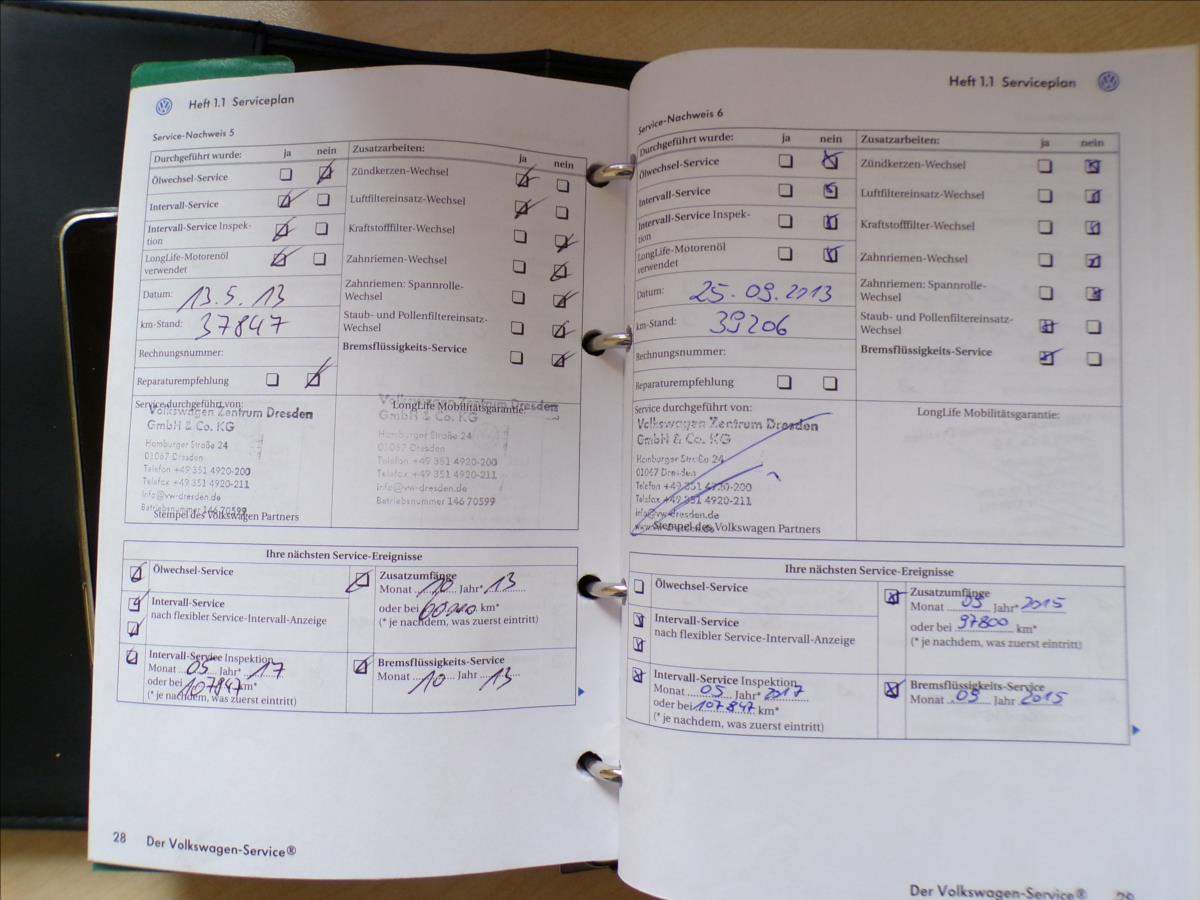 Heft 1.1 Serviceplan
Service-Nachweis 5
Durchgeführt wurde: ja nein
Ölwechsel-Service
Intervall-Service
Intervall-Service Inspek-
tion
LongLife-Motorenöl
verwendet
Datum: 13.5.13
km-Stand: 37847
Rechnungsnummer:
Reparaturempfehlung
Zusatzarbeiten: ja nein
Zündkerzen-Wechsel
Luftfiltereinsatz-Wechsel
Kraftstofffilter-Wechsel
Zahnriemen-Wechsel
Zahnriemen: Spannrolle-
Wechsel
Staub- und Pollenfiltereinsatz-
Wechsel
Bremsflüssigkeits-Service
Service durchgeführt von:
Volkswagen Zentrum Dresden
GmbH & Co. KG
Hamburger Straße 24
01067 Dresden
Telefon +49 351 4920-200
Telefax +49 351 4920-211
info@vw-dresden.de
Betriebsnummer 146 70599
Stempel des Volkswagen Partners
LongLife Mobilitätsgarantie:
Volkswagen Zentrum Dresden
GmbH & Co. KG
Hamburger Straße 24
01067 Dresden
Telefon +49 351 4920-200
Telefax +49 351 4920-211
info@vw-dresden.de
Betriebsnummer 146 70599
Ihre nächsten Service-Ereignisse
Ölwechsel-Service
Intervall-Service
nach flexibler Service-Intervall-Anzeige
Intervall-Service Inspektion
Monat 05 Jahr* 17
oder bei 107847 km*
(* je nachdem, was zuerst eintritt)
Zusatzumfänge
Monat 10 Jahr* 13
oder bei km*
(* je nachdem, was zuerst eintritt)
Bremsflüssigkeits-Service
Monat 10 Jahr 13
28 Der Volkswagen-Service®
Heft 1.1 Serviceplan
Service-Nachweis 6
Durchgeführt wurde: ja nein
Ölwechsel-Service
Intervall-Service
Intervall-Service Inspek-
tion
LongLife-Motorenöl
verwendet
Datum: 25.09.2013
km-Stand: 39206
Rechnungsnummer:
Reparaturempfehlung
Zusatzarbeiten: ja nein
Zündkerzen-Wechsel
Luftfiltereinsatz-Wechsel
Kraftstofffilter-Wechsel
Zahnriemen-Wechsel
Zahnriemen: Spannrolle-
Wechsel
Staub- und Pollenfiltereinsatz-
Wechsel
Bremsflüssigkeits-Service
Service durchgeführt von:
Volkswagen Zentrum Dresden
GmbH & Co. KG
Hamburger Straße 24
01067 Dresden
Telefon +49 351 4920-200
Telefax +49 351 4920-211
info@vw-dresden.de
Stempel des Volkswagen Partners
LongLife Mobilitätsgarantie:
Ihre nächsten Service-Ereignisse
Ölwechsel-Service
Intervall-Service
nach flexibler Service-Intervall-Anzeige
Intervall-Service Inspektion
Monat 05 Jahr* 2017
oder bei 107847 km*
(* je nachdem, was zuerst eintritt)
Zusatzumfänge
Monat 09 Jahr* 2015
oder bei 97800 km*
(* je nachdem, was zuerst eintritt)
Bremsflüssigkeits-Service
Monat 09 Jahr 2015
Der Volkswagen-Service®